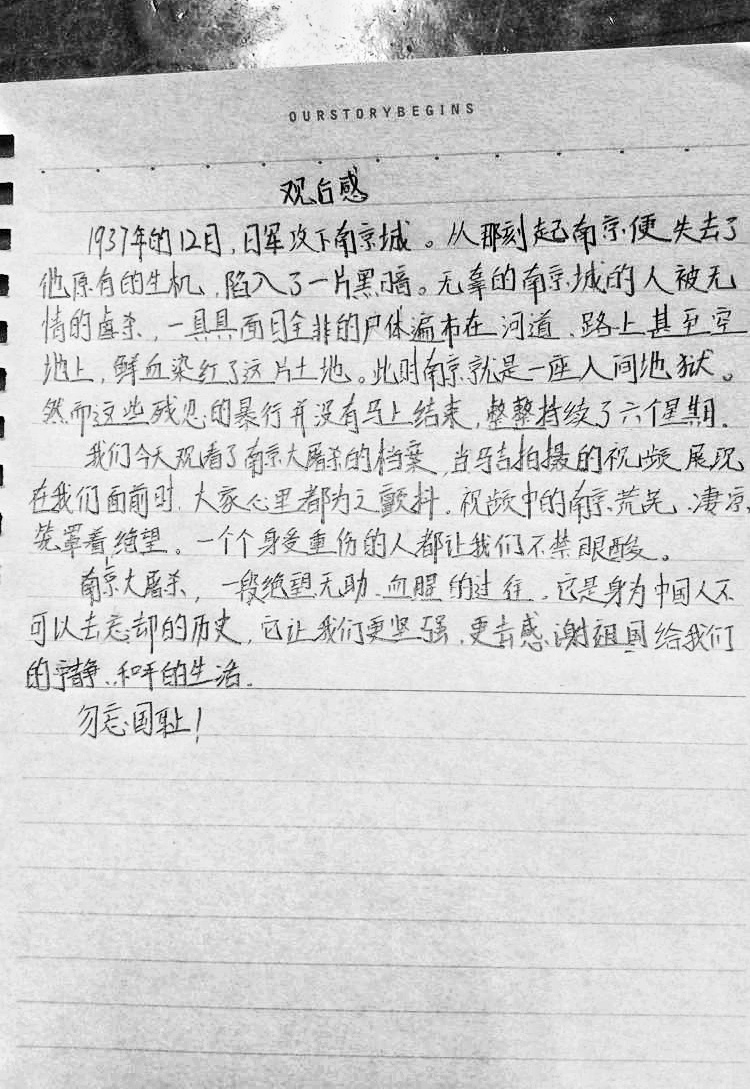 OURSTORYBEGINS
观后感
1937年的12月,日军攻下南京城。从那刻起南京便失去了
他原有的生机,陷入了一片黑暗。无辜的南京城的人被无
情的虐杀,一具具面目全非的尸体遍布在河道、路上甚至空
地上,鲜血染红了这片土地。此时南京就是一座人间地狱。
然而这些残忍的暴行并没有马上结束,整整持续了六个星期.
我们今天观看了南京大屠杀的档案,当马吉拍摄的视频展现
在我们面前时,大家心里都为之颤抖.视频中的南京荒芜、凄凉
笼罩着绝望。一个个身受重伤的人都让我们不禁眼酸。
南京大屠杀,一段绝望无助、血腥的过往.它是身为中国人不
可以去忘却的历史,它让我们更坚强,更去感谢祖国给我们
的宁静、和平的生活.
勿忘国耻!